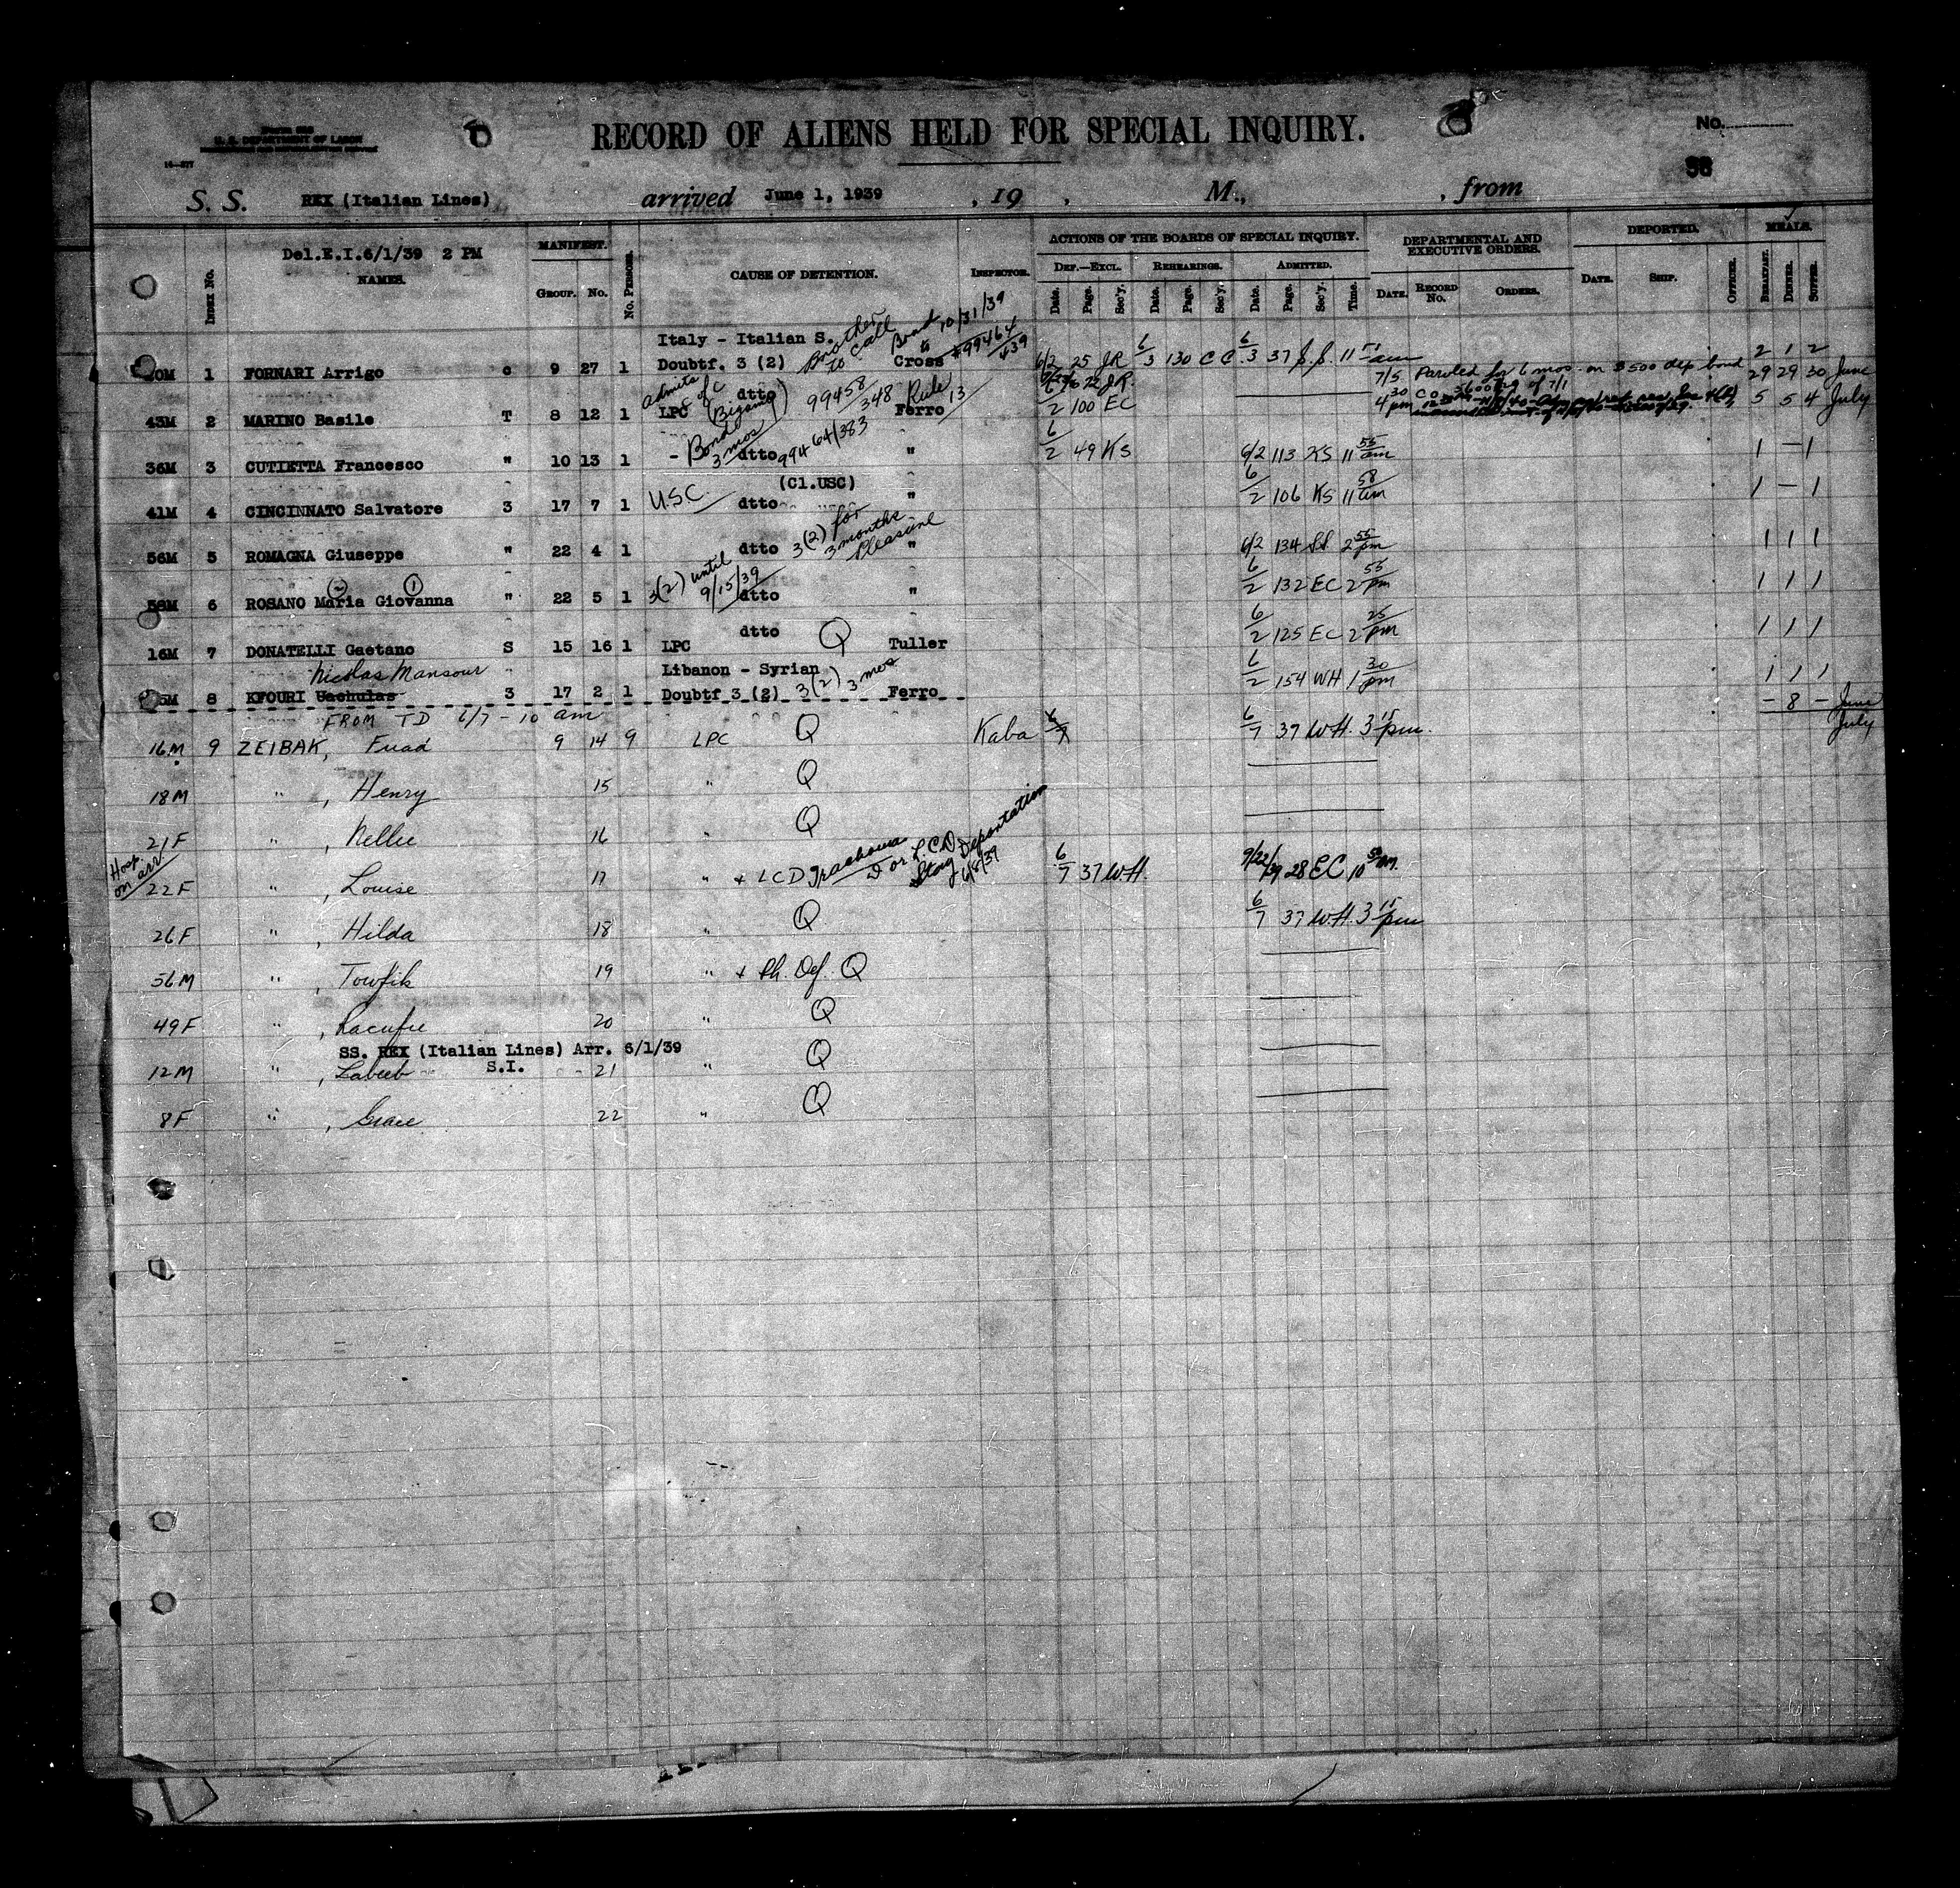 U. S. DEPARTMENT OF LABOR
14—277
RECORD OF ALIENS HELD FOR SPECIAL INQUIRY.
No.
38
S. S. REX (Italian Lines) arrived June 1, 1939 , 19 , M., , from
Del.E.I.6/1/39 2 PM
INDEX NO. NAMES. MANIFEST. GROUP. NO. NO. PERSONS. CAUSE OF DETENTION. INSPECTOR. ACTIONS OF THE BOARDS OF SPECIAL INQUIRY. DEF.—EXCL. Date. Page. Sec'y. REHEARINGS. Date. Page. Sec'y. ADMITTED. Date. Page. Sec'y. Time. DEPARTMENTAL AND EXECUTIVE ORDERS. DATE. RECORD NO. ORDERS. DEPORTED. DATE. SHIP. OFFICER. MEALS. BREAKFAST. DINNER. SUPPER.
Italy - Italian S. Brother to call Bond 10/31/39
1 FORNARI Arrigo c 9 27 1 Doubtf. 3 (2) Cross 99464/439 6/2 25 JR 6/3 130 C C 6/3 37 11 51 am 2 1 2
7/5 Paroled for 6 mos. on $500 dep bond 29 29 30 June
43M 2 MARINO Basile T 8 12 1 admits of c dtto LPC (Bigamy) 99458/348 Rule 13 Ferro 6/2 100 EC 4 30 pm 5 5 4 July
36M 3 CUTIETTA Francesco " 10 13 1 - Bond 3 mos dtto 99464/383 " 6/2 49 KS 6/2 113 KS 11 55 am 1 - 1
(Cl.USC)
41M 4 CINCINNATO Salvatore 3 17 7 1 USC dtto " 6/2 106 KS 11 58 am 1 - 1
56M 5 ROMAGNA Giuseppe " 22 4 1 dtto 3(2) for 3 months Pleasure " 6/2 134 2 55 pm 1 1 1
(2) (1)
58M 6 ROSANO Maria Giovanna " 22 5 1 3(2) until 9/15/39 dtto " 6/2 132 EC 2 55 pm 1 1 1
dtto
16M 7 DONATELLI Gaetano S 15 16 1 LPC Q Tuller 6/2 125 EC 2 25 pm 1 1 1
Nicolas Mansour Libanon - Syrian
8 KFOURI Uachulas 3 17 2 1 Doubtf 3 (2) 3(2) 3 mos Ferro 6/2 154 WH 1 30 pm 1 1 1
FROM TD 6/7 - 10 am - 8 - June
16M 9 ZEIBAK, Fuad 9 14 9 LPC Q Kaba 6/7 37 WH. 3 15 pm. July
18M " , Henry 15 " Q
21F " , Nellie 16 " Q
Hosp on arr
22F " , Louise 17 " + LCD Trachoma D or LCD Stay Deportation 6/8/39 6/7 37 W.H. 9/22/39 28 EC 10 50 AM.
26F " , Hilda 18 " Q 6/7 37 WH. 3 15 pm
56M " , Towfik 19 " + Ph. Def. Q
49F " , 20 " Q
SS. REX (Italian Lines) Arr. 6/1/39
S.I.
12M " , Labeeb 21 " Q
8F " , Grace 22 " Q